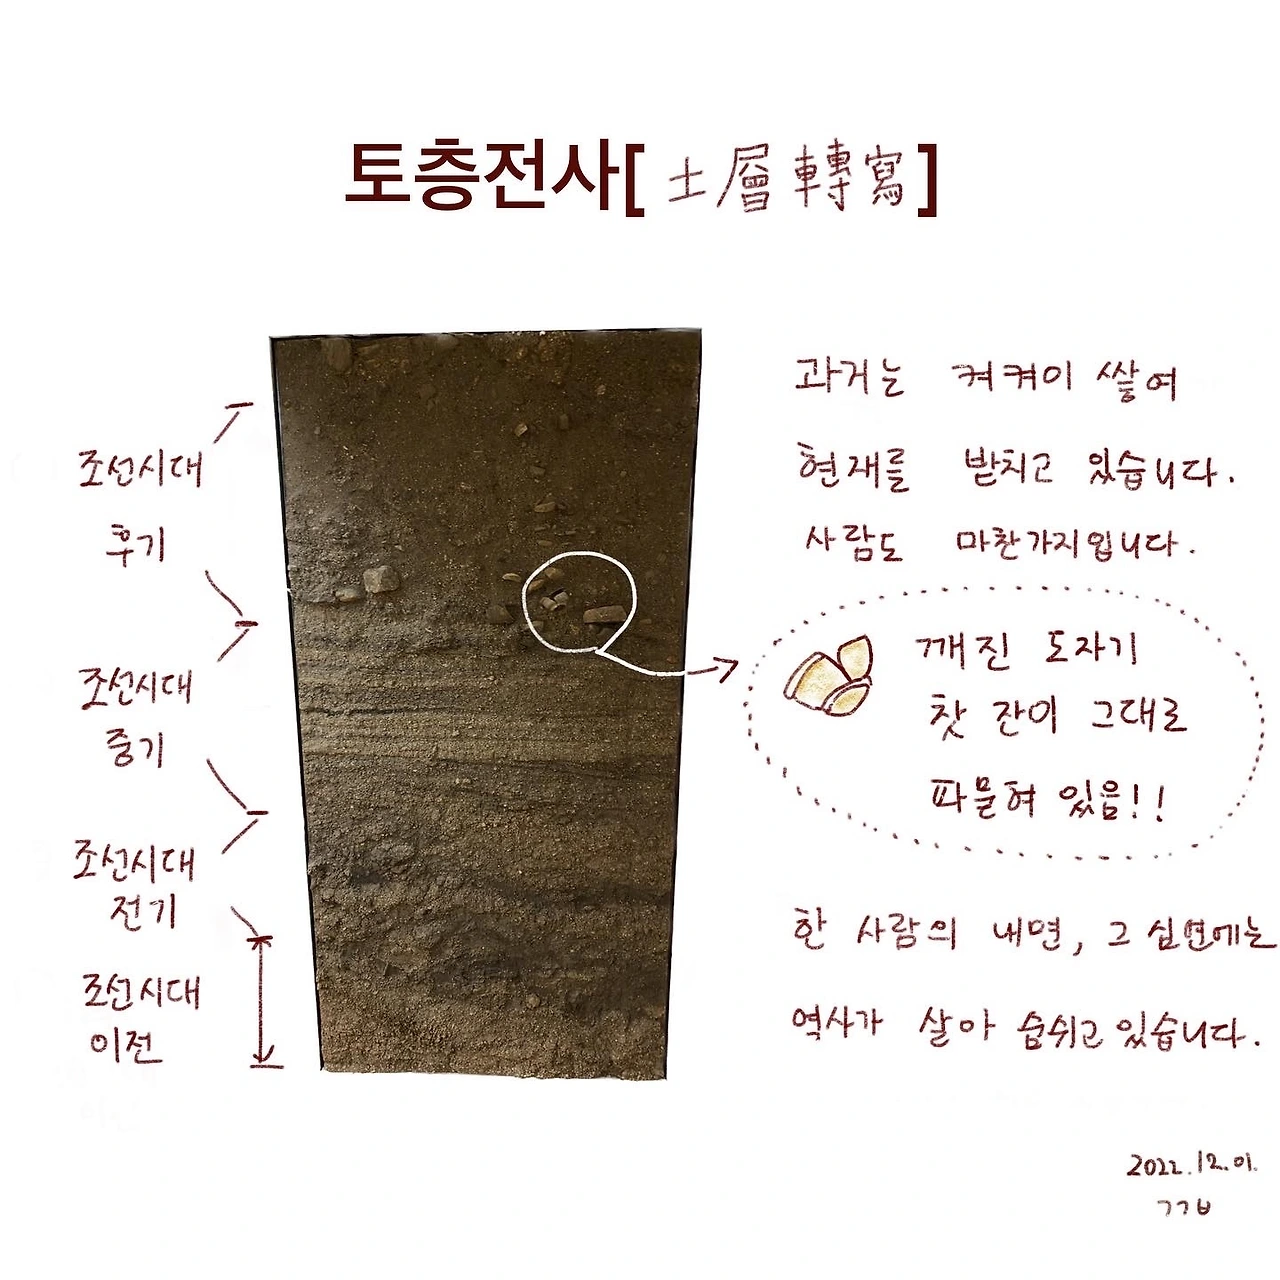 토층전사[土層轉寫]
조선시대
후기
조선시대
중기
조선시대
전기
조선시대
이전
과거는 켜켜이 쌓여
현재를 받치고 있습니다.
사람도 마찬가지입니다.
깨진 도자기
찻 잔이 그대로
파뭍혀 있음!!
한 사람의 내면, 그 심연에는
역사가 살아 숨쉬고 있습니다.
2022.12.01.
ㄱㄱㅂ